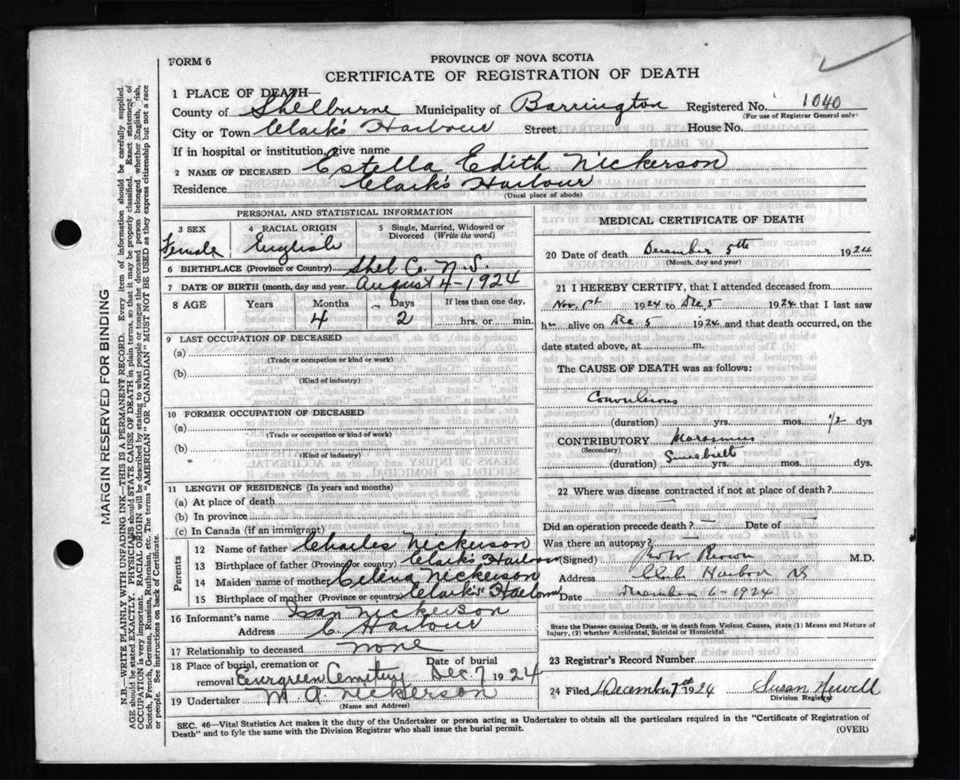 FORM 6
PROVINCE OF NOVA SCOTIA
CERTIFICATE OF REGISTRATION OF DEATH
1 PLACE OF DEATH—
County of Shelburne Municipality of Barrington Registered No. 1040
(For use of Registrar General only)
City or Town Clark's Harbour Street House No.
If in hospital or institution, give name
2 NAME OF DECEASED Estella Edith Nickerson
Residence Clark's Harbour
(Usual place of abode)
PERSONAL AND STATISTICAL INFORMATION
3 SEX 4 RACIAL ORIGIN 5 Single, Married, Widowed or Divorced (Write the word)
Female English
6 BIRTHPLACE (Province or Country) Shel Co. N.S.
7 DATE OF BIRTH (month, day and year) August 4-1924
8 AGE Years Months Days If less than one day,
4 2 hrs. or min.
9 LAST OCCUPATION OF DECEASED
(a)
(Trade or occupation or kind or work)
(b)
(Kind of industry)
10 FORMER OCCUPATION OF DECEASED
(a)
(Trade or occupation or kind of work)
(b)
(Kind of industry)
11 LENGTH OF RESIDENCE (In years and months)
(a) At place of death
(b) In province
(c) In Canada (if an immigrant)
Parents
12 Name of father Charles Nickerson
13 Birthplace of father (Province or country) Clark's Harbour
14 Maiden name of mother Nickerson
15 Birthplace of mother (Province or country) Clark's Harbour
16 Informant's name Nickerson
Address C. Harbour
17 Relationship to deceased none
18 Place of burial, cremation or removal Evergreen Cemetery Date of burial Dec. 7 1924
19 Undertaker M. A. Nickerson
(Name and Address)
MEDICAL CERTIFICATE OF DEATH
20 Date of death December 5th 1924
(Month, day and year)
21 I HEREBY CERTIFY, that I attended deceased from
Nov. 1st 1924 to Dec. 5 1924 that I last saw
h alive on Dec 5 1924 and that death occurred, on the
date stated above, at m.
The CAUSE OF DEATH was as follows:
Convulsions
(duration) yrs. mos. 1/2 dys
CONTRIBUTORY Marasmus
(Secondary) Since birth
(duration) yrs. mos. dys.
22 Where was disease contracted if not at place of death?
Did an operation precede death? — Date of —
Was there an autopsy?
(Signed) Brown M.D.
Address Harbor NS
Date December 6-1924
State the Disease causing Death, or in death from Violent Causes, state (1) Means and Nature of Injury, (2) whether Accidental, Suicidal or Homicidal.
23 Registrar's Record Number
24 Filed December 7th 1924 Susan Newell
Division Registrar
SEC. 46—Vital Statistics Act makes it the duty of the Undertaker or person acting as Undertaker to obtain all the particulars required in the "Certificate of Registration of
Death" and to fyle the same with the Division Registrar who shall issue the burial permit.
(OVER)
MARGIN RESERVED FOR BINDING
N.B.—WRITE PLAINLY WITH UNFADING INK—THIS IS A PERMANENT RECORD. Every item of information should be carefully supplied.
AGE should be stated EXACTLY. PHYSICIANS should STATE CAUSE OF DEATH in plain terms, so that it may be properly classified. Exact statement of
OCCUPATION is very important. RACIAL ORIGIN will be described by stating to what people or tongue the deceased person belonged whether English, Irish,
Scotch, French, German, Russian, Ruthenian, etc. The terms "AMERICAN" or "CANADIAN" MUST NOT BE USED as they express citizenship but not a race
or people. See instructions on back of Certificate.